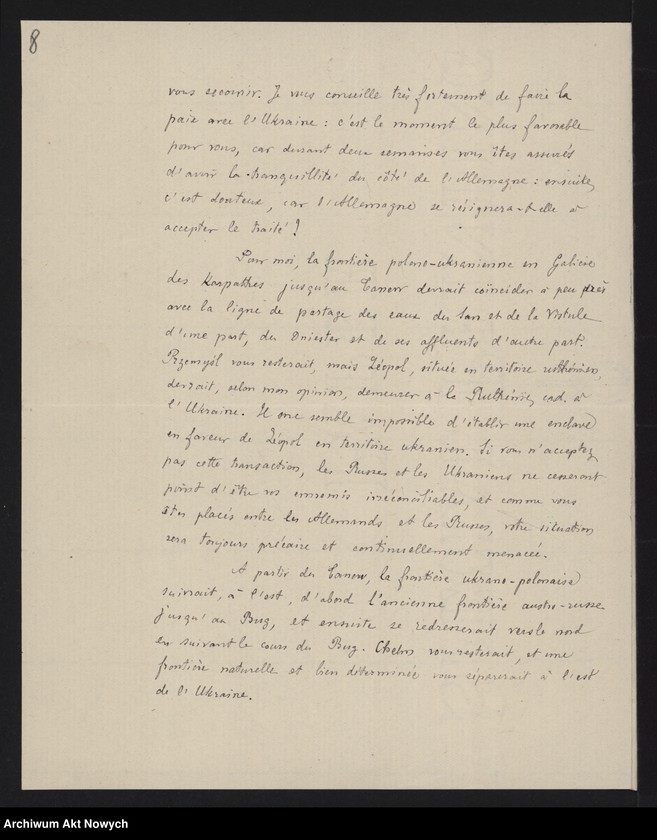 8
vous secourir. Je vous conseille très fortement de faire la
paix avec l'Ukraine : c'est le moment le plus favorable
pour vous, car durant deux semaines vous êtes assurés
d'avoir la tranquillité du côté de l'Allemagne : ensuite,
c'est douteux, car l'Allemagne se résignera-t-elle à
accepter le traité ?
Pour moi, la frontière polono-ukranienne en Galicie
des Karpathes jusqu'au Tanow devrait coïncider à peu près
avec la ligne de partage des eaux du San et de la Vistule
d'une part, du Dniester et de ses affluents d'autre part.
Przemyśl vous resterait, mais Léopol, située en territoire ruthénien,
devrait, selon mon opinion, demeurer à la Ruthénie, cad. à
l'Ukraine. Il me semble impossible d'établir une enclave
en faveur de Léopol en territoire ukranien. Si vous n'acceptez
pas cette transaction, les Russes et les Ukraniens ne cesseront
point d'être vos ennemis irréconciliables, et comme vous
êtes placés entre les Allemands et les Russes, votre situation
sera toujours précaire et continuellement menacée.
A partir du Tanow, la frontière ukrano-polonaise
suivrait, à l'est, d'abord l'ancienne frontière austro-russe
jusqu'au Bug, et ensuite se redresserait vers le nord
en suivant le cours du Bug. Chelm vous resterait, et une
frontière naturelle et bien déterminée vous séparerait à l'est
de l'Ukraine.
Archiwum Akt Nowych